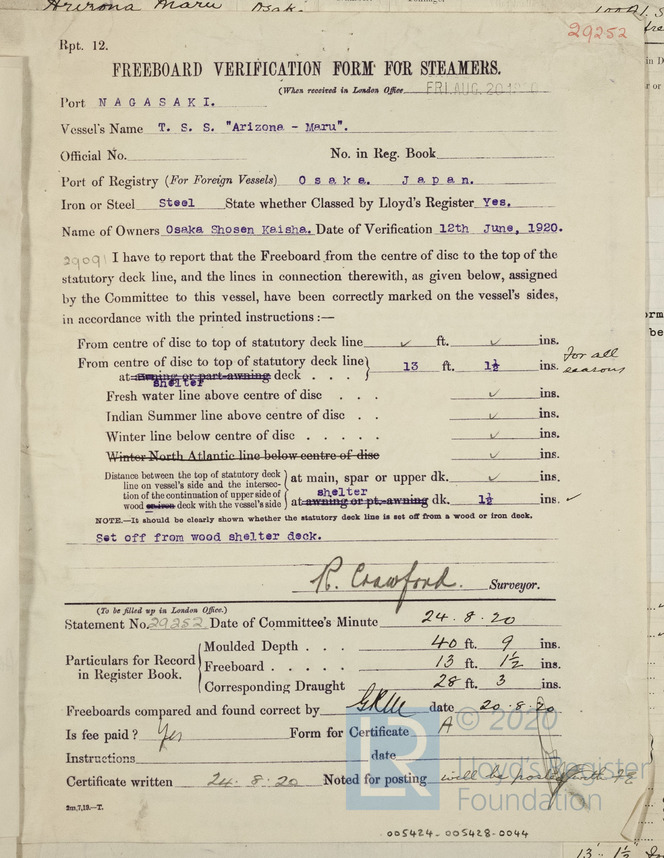 Arizona Maru Osaka
29252
Rpt. 12.
FREEBOARD VERIFICATION FORM FOR STEAMERS.
(When received in London Office FRI. AUG. 20 1920
Port NAGASAKI.
Vessel's Name T. S. S. "Arizona - Maru".
Official No. No. in Reg. Book
Port of Registry (For Foreign Vessels) Osaka. Japan.
Iron or Steel Steel State whether Classed by Lloyd's Register Yes.
Name of Owners Osaka Shosen Kaisha. Date of Verification 12th June, 1920.
29091 I have to report that the Freeboard from the centre of disc to the top of the
statutory deck line, and the lines in connection therewith, as given below, assigned
by the Committee to this vessel, have been correctly marked on the vessel's sides,
in accordance with the printed instructions :—
From centre of disc to top of statutory deck line ✓ ft. ✓ ins.
From centre of disc to top of statutory deck line 13 ft. 1½ ins. for all
at awning or part-awning deck . . . seasons
shelter
Fresh water line above centre of disc . . . ✓ ins.
Indian Summer line above centre of disc . . ✓ ins.
Winter line below centre of disc . . . . . ✓ ins.
Winter North Atlantic line below centre of disc
Distance between the top of statutory deck
line on vessel's side and the intersec- at main, spar or upper dk. ✓ ins.
tion of the continuation of upper side of shelter
wood or iron deck with the vessel's side at awning or pt.-awning dk. 1½ ins. ✓
NOTE.—It should be clearly shown whether the statutory deck line is set off from a wood or iron deck.
Set off from wood shelter deck.
R. Crawford. Surveyor.
(To be filled up in London Office.)
Statement No. 29252 Date of Committee's Minute 24.8.20
Moulded Depth . . . 40 ft. 9 ins.
Particulars for Record
in Register Book. Freeboard . . . . . 13 ft. 1½ ins.
Corresponding Draught 28 ft. 3 ins.
Freeboards compared and found correct by date 20.8.20
Is fee paid ? Yes Form for Certificate A
Instructions date
Certificate written 24.8.20 Noted for posting will be posted with
2m,7,19.—T.
© 2020
LR
Lloyd's Register
Foundation
005424-005428-0044
13' 1½